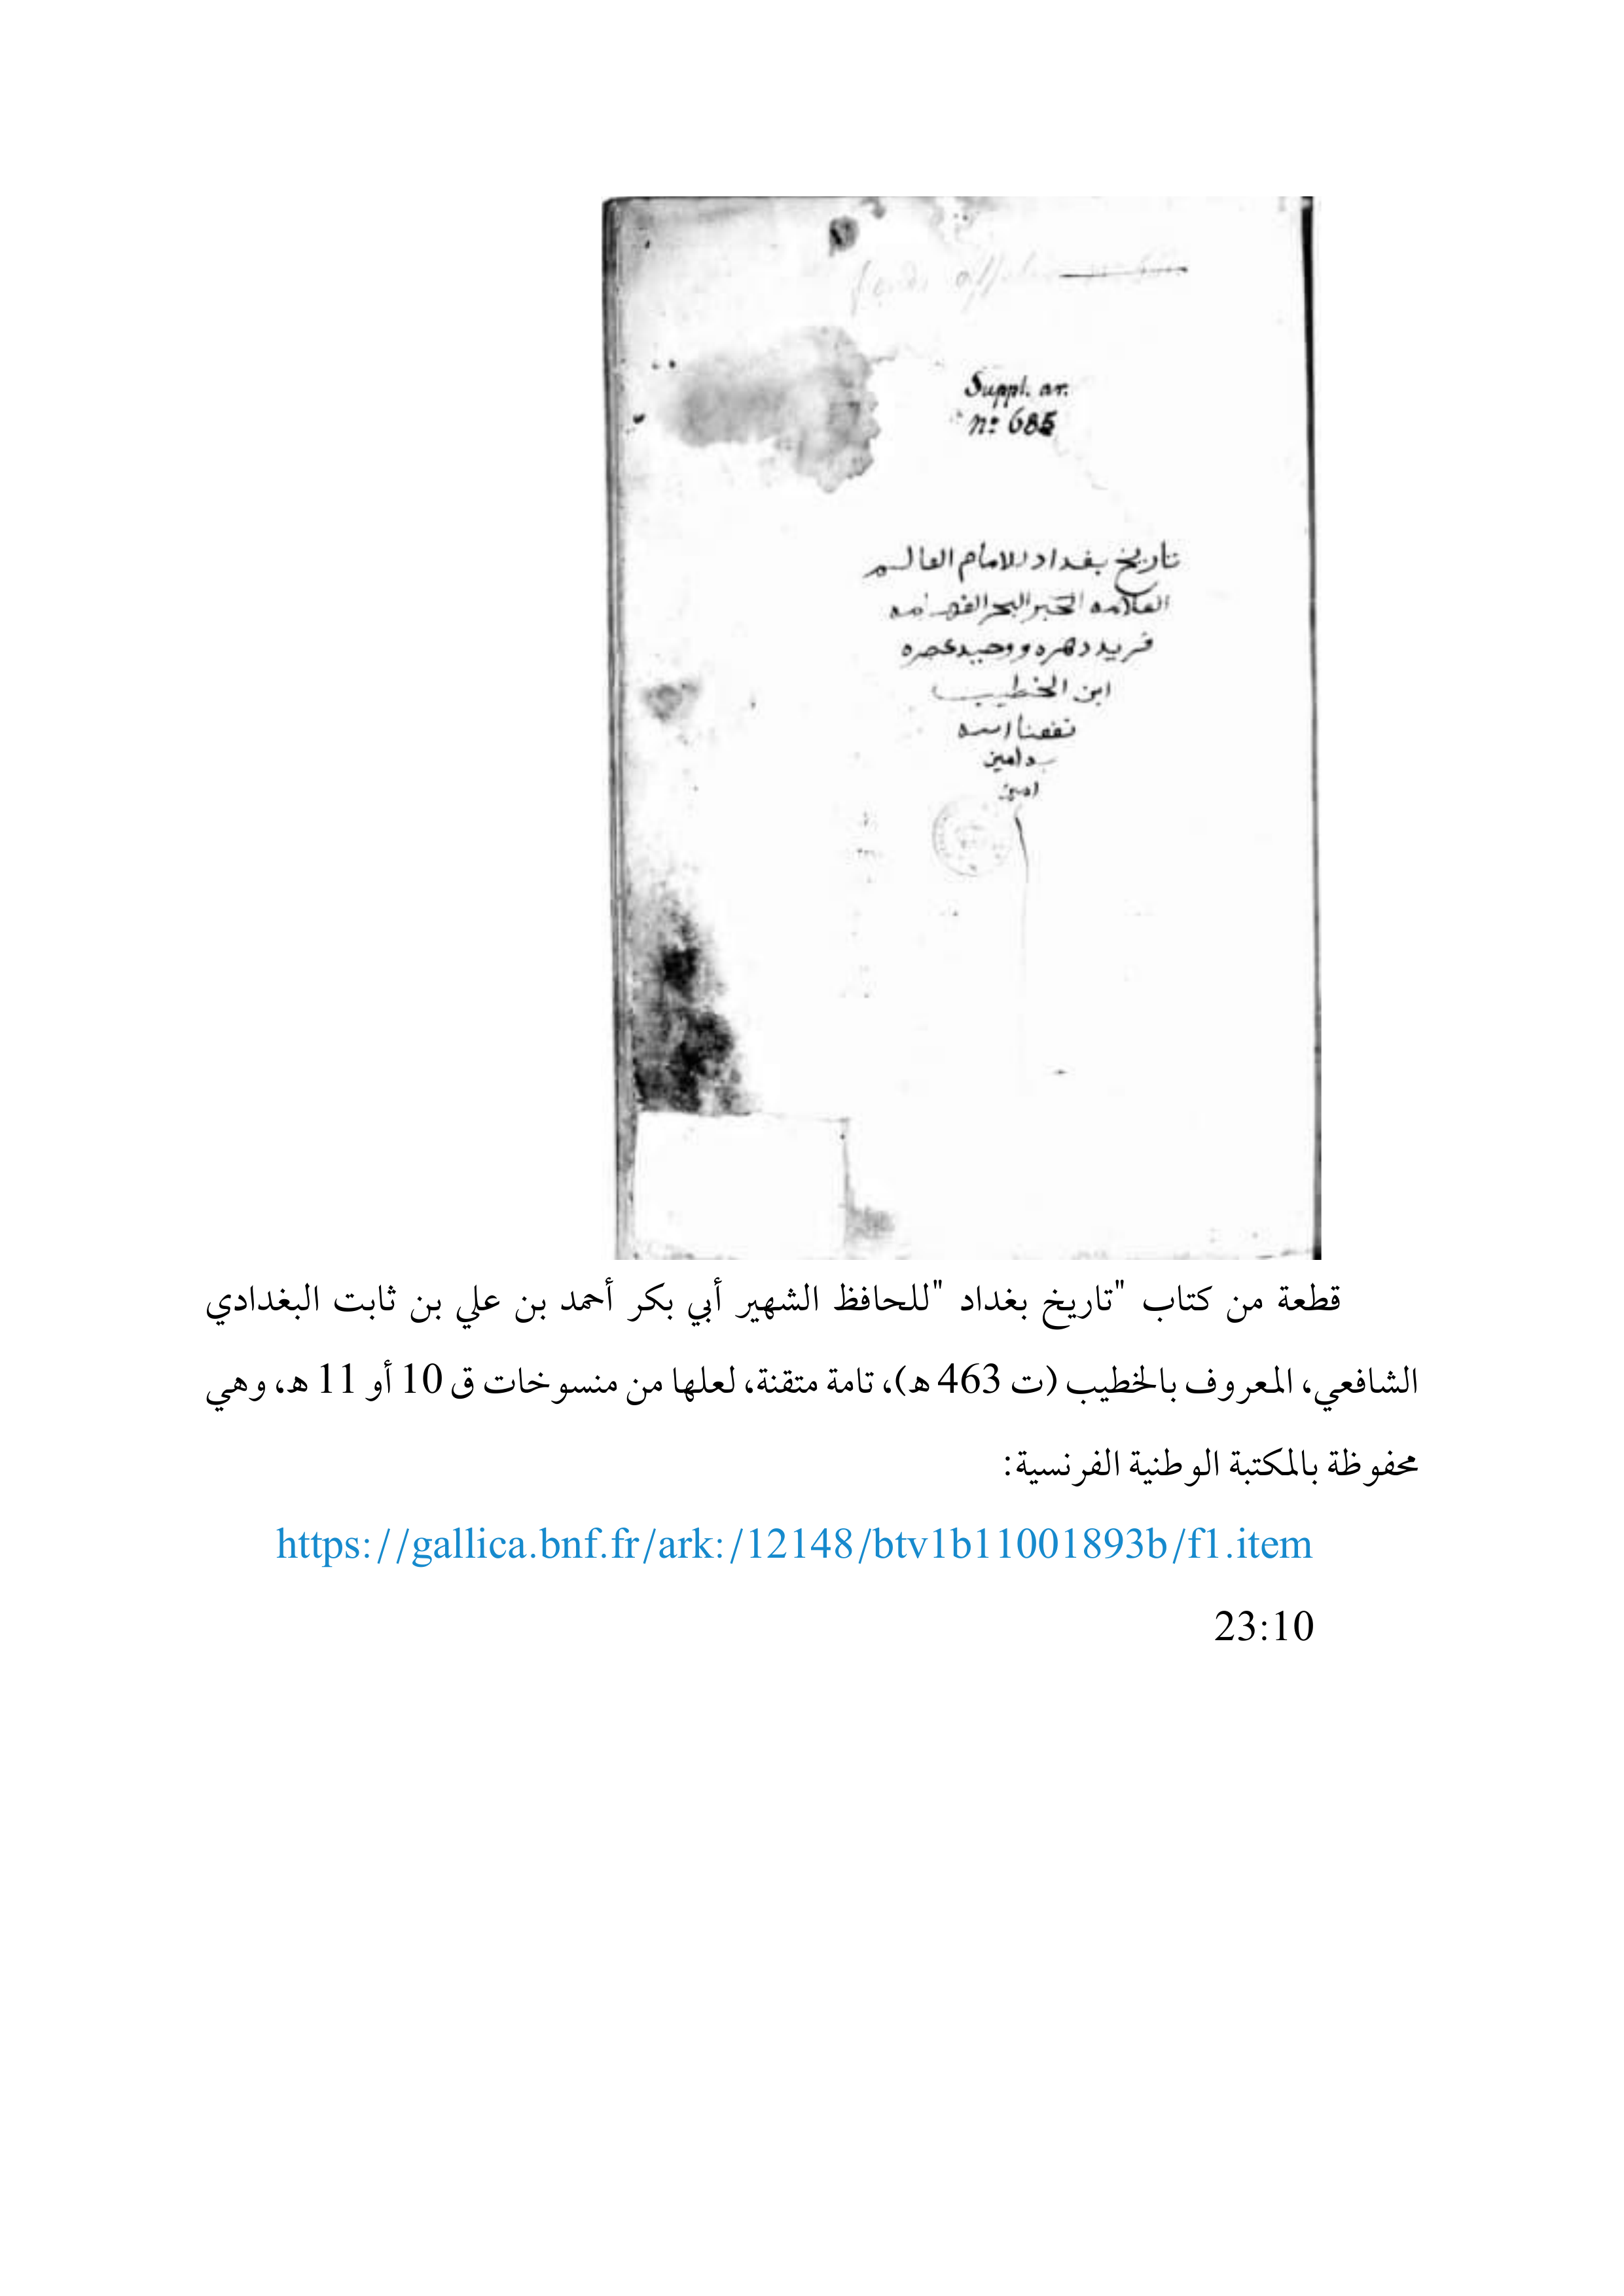 Suppl. ar.
n: 685
تاريخ بغداد للامام العالم
العلامه الحبر البحر
فريد دهره ووحيد عصره
ابن الخطيب
نفعنا الله
به امين
امين
قطعة من كتاب "تاريخ بغداد "للحافظ الشهير أبي بكر أحمد بن علي بن ثابت البغدادي
الشافعي، المعروف بالخطيب (ت 463 ه)، تامة متقنة، لعلها من منسوخات ق 10 أو 11 ه، وهي
محفوظة بالمكتبة الوطنية الفرنسية:
https://gallica.bnf.fr/ark:/12148/btv1b11001893b/f1.item
23:10